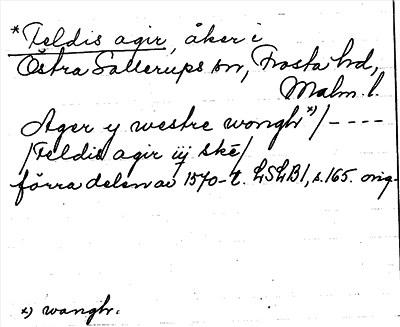 *Feldis agir, åker i
Östra Sallerups sn, Frosta hd,
Malm. l.
Ager y westre wonghr x)/----
/Feldis agir iij skē/
förra delen av 1570-t. LSLB1, s. 165. orig.
x) wanghr.